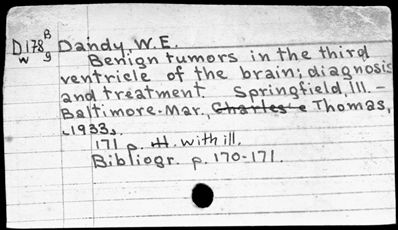 B
D178 Dandy, W.E.
w 9
Benign tumors in the third
ventricle of the brain; diagnosis
and treatment Springfield, Ill. -
Baltimore-Mar., Charles c Thomas,
c1933.
171 p. ill. with ill.
Bibliogr. p. 170-171.